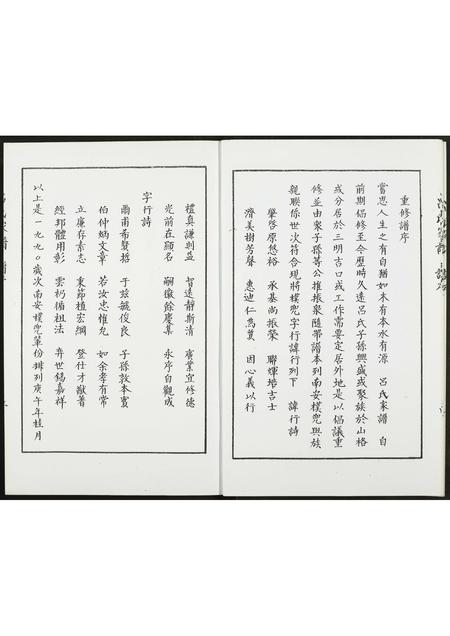 重修譜序
嘗思人生之有自猶如木有本水有源 呂氏家譜 自
前期倡修至今歷時久遠呂氏子孫興盛或聚族於山格
或分居於三明吉口或工作需要定居外地是以倡議重
修並由眾子孫等公推振聚隨帶譜本到南安樸兜與族
親聯係世次符合現將樸兜字行諱行列下 諱行詩
肇啓原悠裕 承基尚振榮 聯輝培吉士
濟美樹芳聲 惠迪仁為質 因心義以行
禮真謙則益 智遠靜斯清 廣業宜修德
光前在顯名 嗣徽餘慶集 永序自觀成
字行詩
爾甫希賢哲 于茲毓俊良 子孫敦本實
伯仲煥文章 若汝忠惟允 如余孝有常
立廉存素志 秉節植宏綱 登仕才猷著
經邦體用彰 雲礽循祖法 弈世錫嘉祥
以上是一九九0歲次南安樸兜輩份排列庚午年桂月